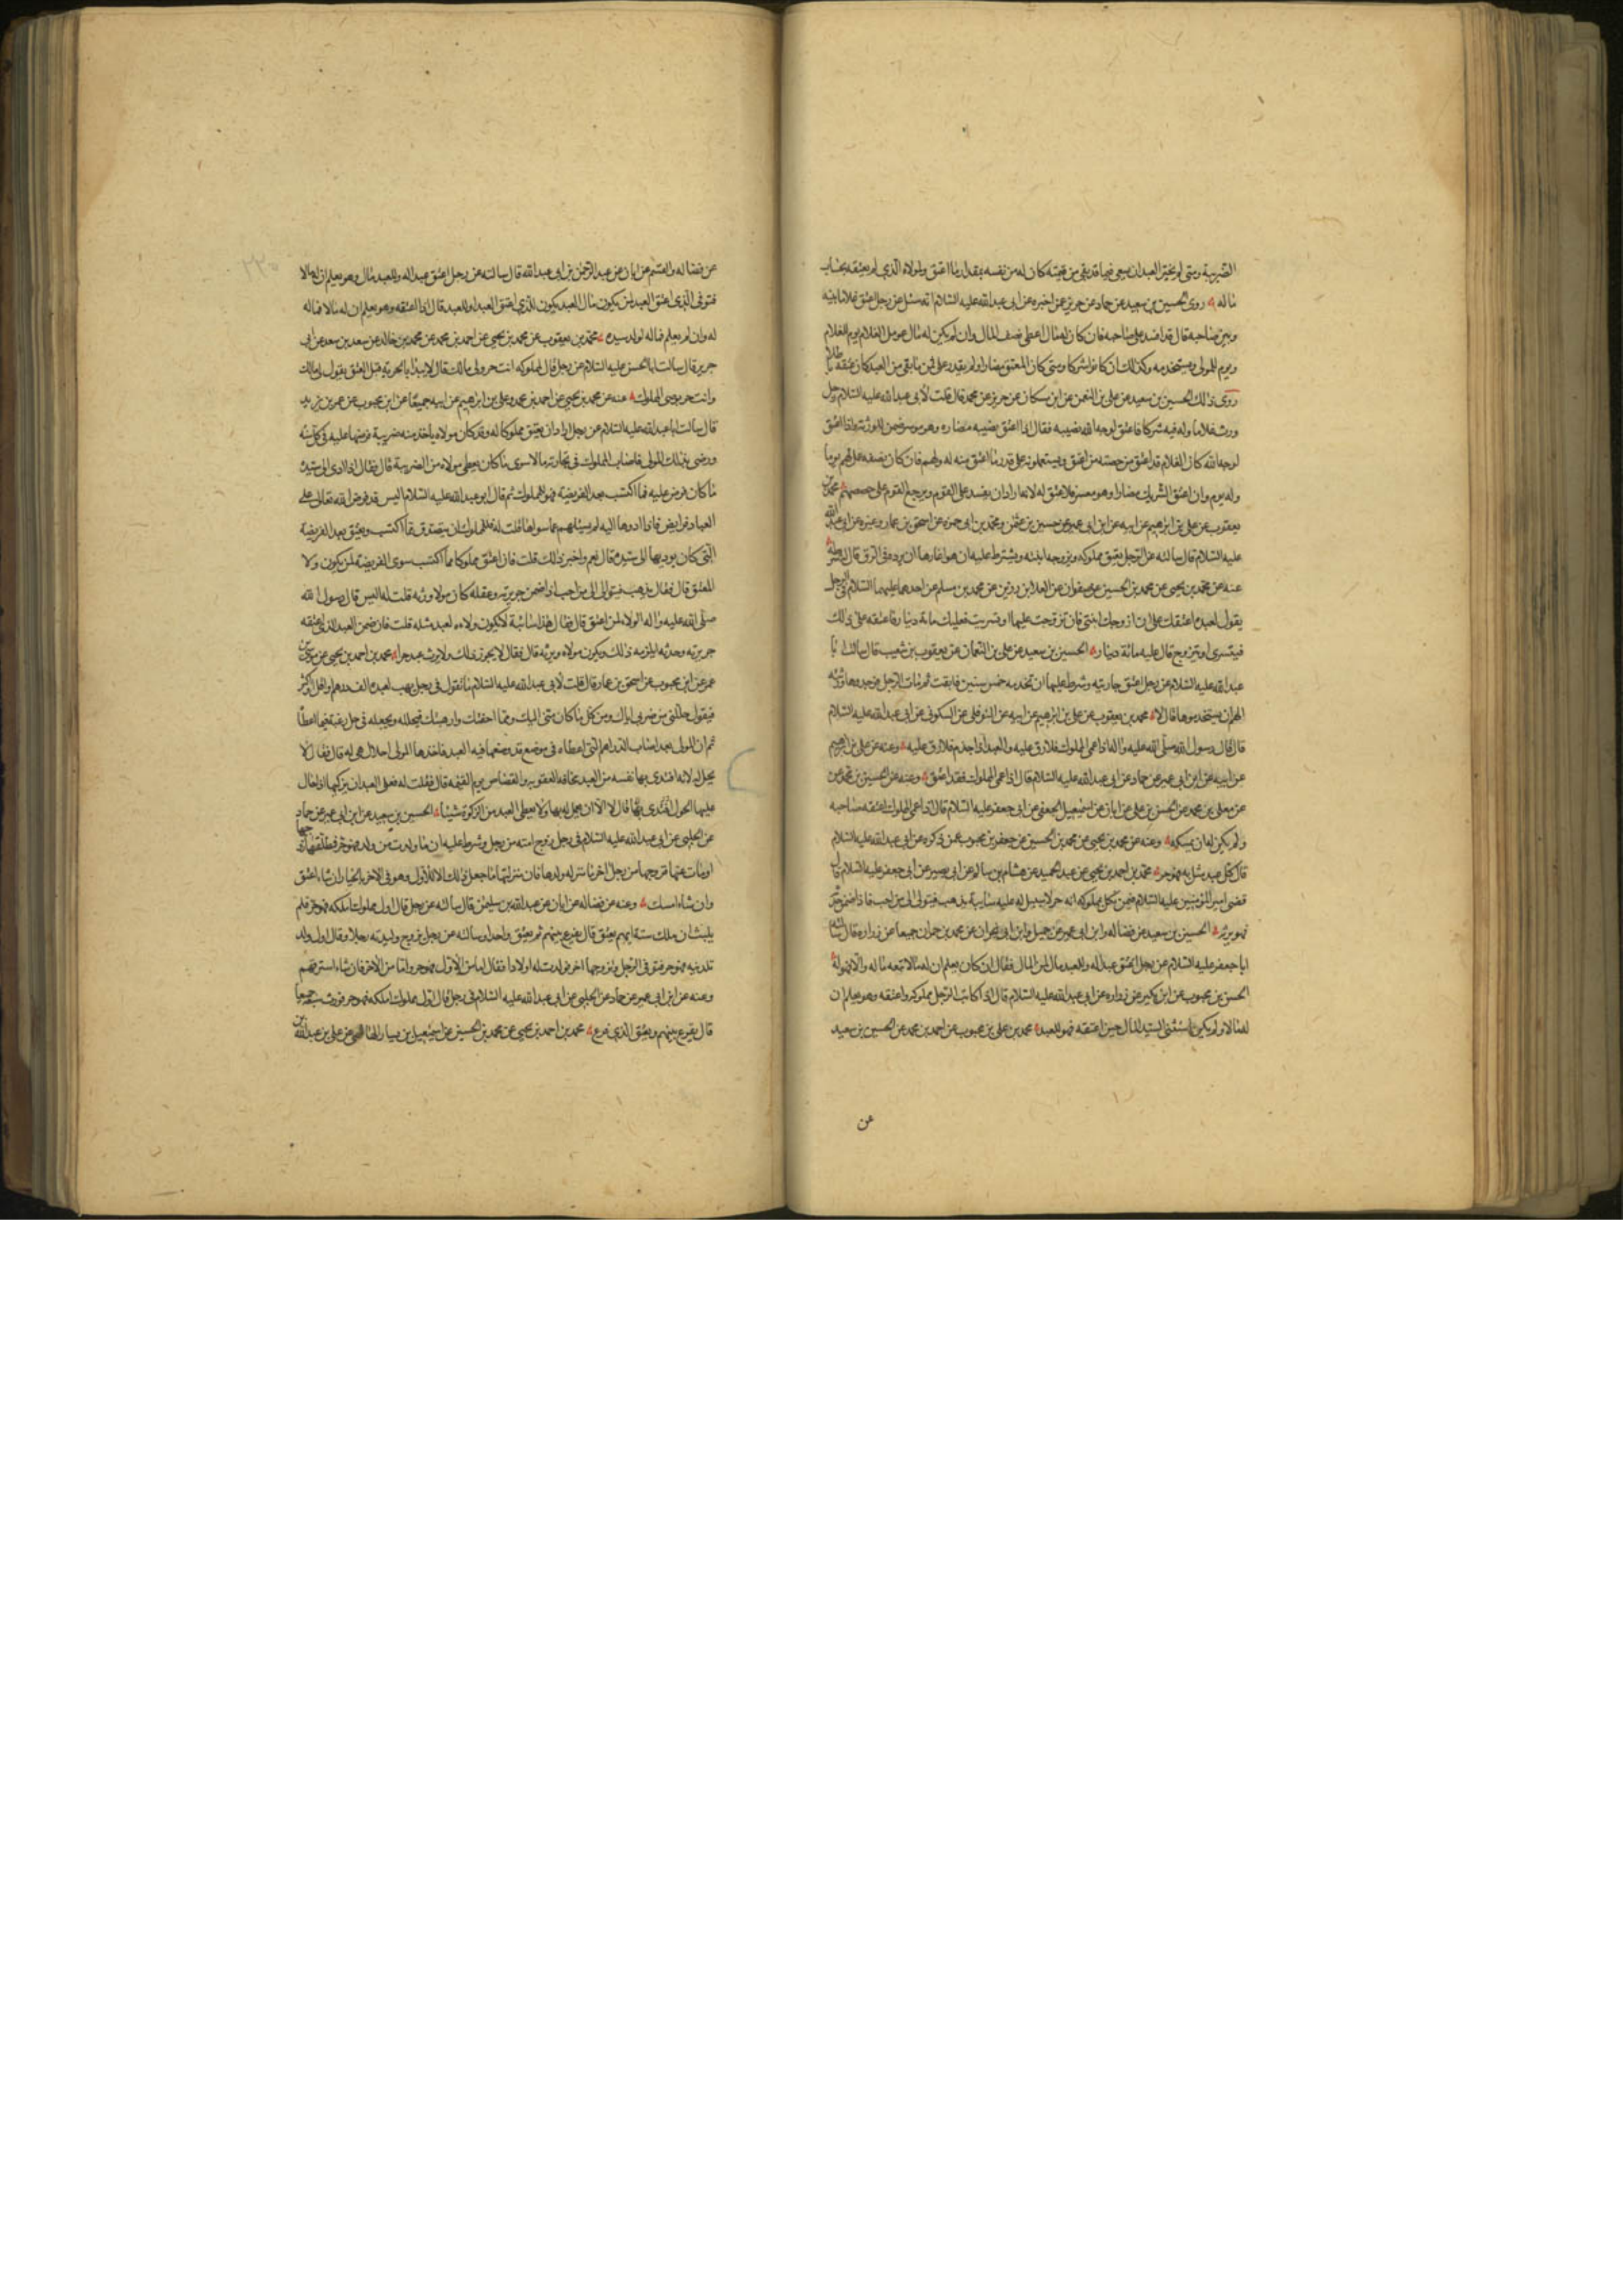 الضريبة ومتى لم يختر العبد ان يسعى فيما قد بقي من قيمته كان له من نفسه بمقدار ما اعتق ولمولاه الذي لم يعتقه بحساب
ماله روى الحسين بن سعيد عن حماد عن حريز عمن اخبره عن ابى عبدالله عليه السلام انه سئل عن رجل اعتق غلاما بينه
وبين صاحبه قال قد افسد على صاحبه فان كان له مال اعطى نصف المال وان لم يكن له مال عومل الغلام يوم للغلام
ويوم للمولى ويستخدمه وكذلك ان كانوا شركا ومتى كان المعتق مضارا ولم يقدر على ثمن ما بقى من العبد كان عتقه باطلا
روى ذلك الحسين بن سعيد عن على بن النعمن عن ابن مسكان عن حريز عن محمد قال قلت لأبى عبدالله عليه السلام رجل
ورث غلاما وله فيه شركا فاعتق لوجه الله نصيبه فقال اذا اعتق نصيبه مضاره وهو موسر ضمن للورثة واذا اعتق
لوجه الله كان الغلام قد اعتق من حصته من اعتق ويستعملونه على قدر ما اعتق منه له ولهم فان كان نصفه عمل لهم يوما
وله يوم وان اعتق الشريك مضارا وهو معسر فلا عتق له لانه اراد ان يفسد على القوم ويرجع القوم على حصصهم محمد بن
يعقوب عن على بن ابرهيم عن ابيه عن ابن ابى عمير عن حسين بن عثمن ومحمد بن ابى حمزه عن اسحق بن عمار وغيره عن ابى عبدالله
عليه السلام قال سالته عن الرجل يعتق مملوكه ويزوجه ابنته ويشترط عليه ان هو اغارها ان يرده فى الرق قال له شرطه
عنه عن محمد بن يحيى عن محمد بن الحسين عن صفوان عن العلا بن رزين عن محمد بن مسلم عن احدهما عليهما السلام فى الرجل
يقول لعبده اعتقك على ان ازوجك ابنتى فان تزوجت عليها او تسريت فعليك مائة دينار فاعتقه على ذلك
فيتسرى او تزوج قال عليه مائة دينار الحسين بن سعيد عن على بن النعمان عن يعقوب بن شعيب قال سالت ابا
عبدالله عليه السلام عن رجل اعتق جاريته وشرط عليها ان تخدمه خمس سنين فابقت ثم مات الرجل فوجدوها ورثته
الهم ان يستخدموها قال لا محمد بن يعقوب عن على بن ابرهيم عن ابيه عن النوفلى عن السكونى عن ابى عبدالله عليه السلام
قال قال رسول الله صلى الله عليه واله اذا عمى المملوك فلا رق عليه والعبد اذا جذم فلا رق عليه وعنه عن على بن ابرهيم
عن ابيه عن ابن ابى عمير عن حماد عن ابى عبدالله عليه السلام قال اذا عمى المملوك فقد اعتق وعنه عن الحسين بن محمد
عن معلى بن محمد عن الحسن بن على عن ابان عن اسمعيل الجعفى عن ابى جعفر عليه السلام قال اذا عمى المملوك اعتقه صاحبه
ولم يكن له ان يمسكه وعنه عن محمد بن يحيى عن محمد بن الحسين عن جعفر بن محبوب عمن ذكره عن ابى عبدالله عليه السلام
قال كل عبد مثل به فهو حر محمد بن احمد بن يحيى عن عبد الحميد عن هشام بن سالم عن ابى بصير عن ابى جعفر عليه السلام قال
قضى امير المؤمنين عليه السلام فيمن نكل بمملوكه انه حر لا سبيل له عليه سائبة يذهب فيتولى الى من احب فاذا ضمن
فهو يرثه الحسين بن سعيد عن فضاله وابن ابى عمير عن جميل وابن ابى نجران عن محمد بن حمران جميعا عن زراره قال سالت
ابا جعفر عليه السلام عن رجل اعتق عبدا له وللعبد مال لمن المال فقال ان كان يعلم ان له مالا تبعه ماله والا فهو له
الحسن بن محبوب عن ابن بكير عن زراره عن ابى عبدالله عليه السلام قال اذا كاتب الرجل مملوكه واعتقه وهو يعلم ان
له مالا ولم يكن استثنى السيد المال حين اعتقه فهو للعبد محمد بن على بن محبوب عن احمد بن محمد عن الحسين بن سعيد
عن
عن فضاله والقسم عن ابان عن عبدالرحمن بن ابى عبدالله قال سالته عن رجل اعتق عبدا له وللعبد مال وهو يعلم ان له مالا
فتوفى الذى اعتق العبد لمن يكون مال العبد يكون للذى اعتق العبد او للعبد قال اذا اعتقه وهو يعلم ان له مالا فماله
له وان لم يعلم فماله لولد سيده محمد بن يعقوب عن محمد بن يحيى عن احمد بن محمد عن محمد بن خالد عن سعد بن سعد عن ابى
جرير قال سالت ابا الحسن عليه السلام عن رجل قال لمملوكه انت حر ولى مالك قال لا يبدأ بالحرية قبل العتق يقول لى مالك
وانت حر برضى المملوك عنه عن محمد بن يحيى عن احمد بن محمد وعلى بن ابراهيم عن ابيه جميعا عن ابن محبوب عن عمر بن يزيد
قال سالت ابا عبدالله عليه السلام عن رجل اراد ان يعتق مملوكا له وقد كان مولاه ياخذ منه ضريبة فرضها عليه فى كل سنه
ورضى بذلك المولى فاصاب المملوك فى تجارته مالا سوى ما كان يعطى مولاه من الضريبة قال فقال اذا ادى الى سيده
ما كان فرض عليه فما اكتسب بعد الفريضة فهو للمملوك ثم قال ابو عبدالله عليه السلام اليس قد فرض الله تعالى على
العباد فرايض فاذا ادوها اليه لم يسئلهم عما سواها قلت له فللمملوك ان يتصدق مما اكتسب ويعتق بعد الفريضة
التى كان يوديها الى سيده قال نعم واجر ذلك له قلت فان اعتق مملوكا مما اكتسب سوى الفريضة لمن يكون ولا
المعتق قال فقال يذهب فيتوالى الى من احب فاذا ضمن جريرته وعقله كان مولاه ورثه قلت له اليس قال رسول الله
صلى الله عليه واله الولاء لمن اعتق قال فقال هذا سائبة لا يكون ولاءه لعبد مثله قلت فان ضمن العبد الذى اعتقه
جريرته وحدثه ايلزمه ذلك ويكون مولاه ويرثه قال فقال لا يجوز ذلك ولا يرث عبد حرا محمد بن احمد بن يحيى عن موسى بن
عمر عن ابن محبوب عن اسحق بن عمار قال قلت لابى عبدالله عليه السلام ما تقول فى رجل يهب لعبده الف درهم او اقل او اكثر
فيقول حللنى من ضربى اياك ومن كل ما كان منى اليك ومما اخفتك وارهبتك فيحلله ويجعله فى حل رغبة فيما اعطا
ثم ان المولى بعد اصاب الدراهم التى اعطاه فى موضع قد وضعها فيه العبد فاخذها المولى احلال هى له قال فقال لا
يحل له لانه افتدى بها نفسه من العبد مخافة العقوبه والقصاص يوم القيمه قال فقلت له فعلى العبد ان يزكيها اذا حال
عليها الحول قال لا الا ان يعمل له بها ولا يعطى العبد من الزكوة شيئا الحسين بن سعيد عن ابن ابى عمير عن حماد
عن الحلبى عن ابى عبدالله عليه السلام فى رجل زوج امته من رجل وشرط عليه ان ما ولدت من ولد فهو حر فطلقها زوجها
او مات عنها فزوجها من رجل اخر ما منزله ولدها قال منزلتها ما جعل ذلك الا للاول وهو فى الاخر بالخيار ان شاء اعتق
وان شاء امسك وعنه عن فضاله عن ابان عن عبدالله بن سليمن قال سالته عن رجل قال اول مملوك املكه فهو حر فلم
يلبث ان ملك ستة ايهم يعتق قال يقرع بينهم ثم يعتق واحدا وسالته عن رجل يزوج وليدته رجلا وقال اول ولد
تلدينه فهو حر فتوفى الرجل وتزوجها اخر فولدت له اولادا فقال اما من الاول فهو حر واما من الاخر فان شاء استرقهم
وعنه عن ابن ابى عمير عن حماد عن الحلبى عن ابى عبدالله عليه السلام فى رجل قال اول مملوك املكه فهو حر فورث سبعة جميعا
قال يقرع بينهم ويعتق الذى قرع محمد بن احمد بن يحيى عن محمد بن الحسين عن اسمعيل بن يسار الهاشمى عن على بن عبدالله